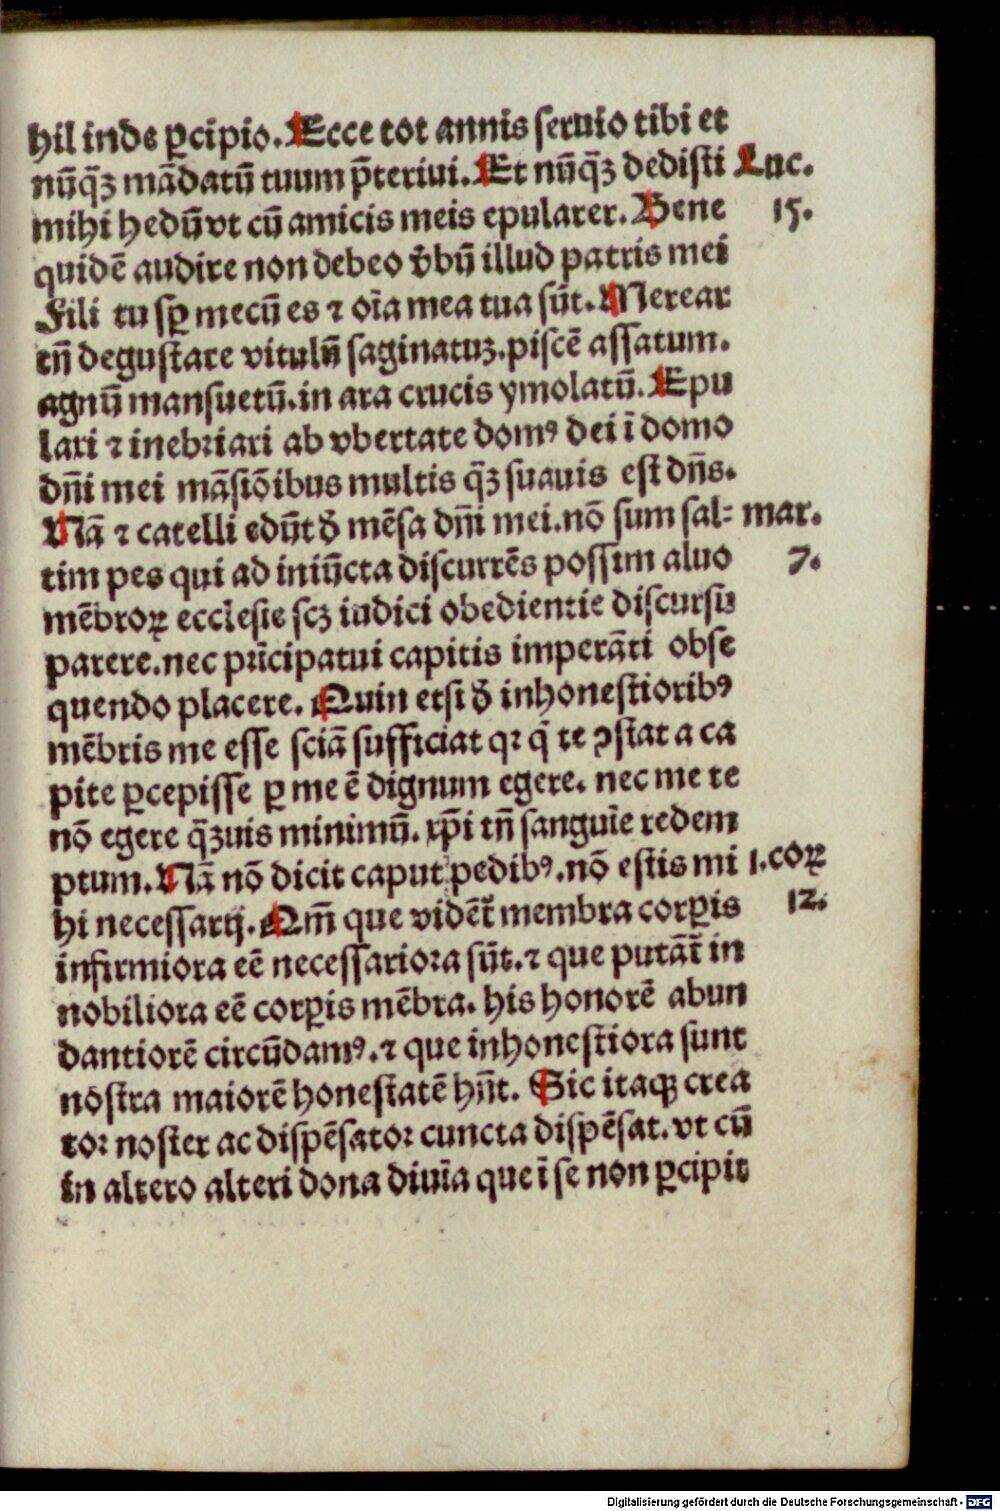 hil inde ꝑcipio. Ecce tot annis ſeruio tibi et
nūq̄ꝫ mādatū tuum p̄teriui. Et nūq̄ꝫ dediſti Luc.
mihi hedū vt cū amicis meis epularer. Bene 15.
quidē audire non debeo v̓bū illud patris mei
Fili tu ſꝑ mecū es ⁊ oīa mea tua ſūt. Merear
tn̄ deguſtare vitulū ſaginatuꝫ. piſcē aſſatum.
agnū manſuetū. in ara crucis ymolatū. Epu
lari ⁊ inebꝛiari ab vbertate domꝰ dei ī domo
dn̄i mei māſiōibus multis q̄ꝫ ſuauis eſt dn̄s.
Nā ⁊ catelli edūt d̓ mēſa dn̄i mei. nō ſum ſal- mar.
tim pes qui ad iniūcta diſcurrēs poſſim aluo 7.
mēbroꝝ eccleſie ſcꝫ iudici obedientie diſcurſu
parere. nec prīcipatui capitis imperāti obſe
quendo placere. Quin etſi d̓ inhoneſtioribꝰ
mēbris me eſſe ſciā ſufficiat qꝛ q̄ te ꝯſtat a ca
pite ꝑcepiſſe ꝑ me ē dignum egere. nec me te
nō egere q̄ꝫuis minimū. xp̄i tn̄ ſanguīe redem
ptum. Nā nō dicit caput pedibꝰ. nō eſtis mi 1.coꝝ
hi neceſſarij. Qm̄ que vidēt᷑ membra corꝑis 12.
infirmiora eē neceſſarioꝛa ſūt. ⁊ que putāt᷑ in
nobiliora eē corꝑis mēbra. his honorē abun
dantiorē circūdamꝰ. ⁊ que inhoneſtiora ſunt
noſtra maiorē honeſtatē hn̄t. Sic itaqꝫ crea
toꝛ noſter ac diſpēſatoꝛ cuncta diſpēſat. vt cū
in altero alteri dona diuīa que ī ſe non ꝑcipit
Digitalisierung gefördert durch die Deutsche Forschungsgemeinschaft - DFG